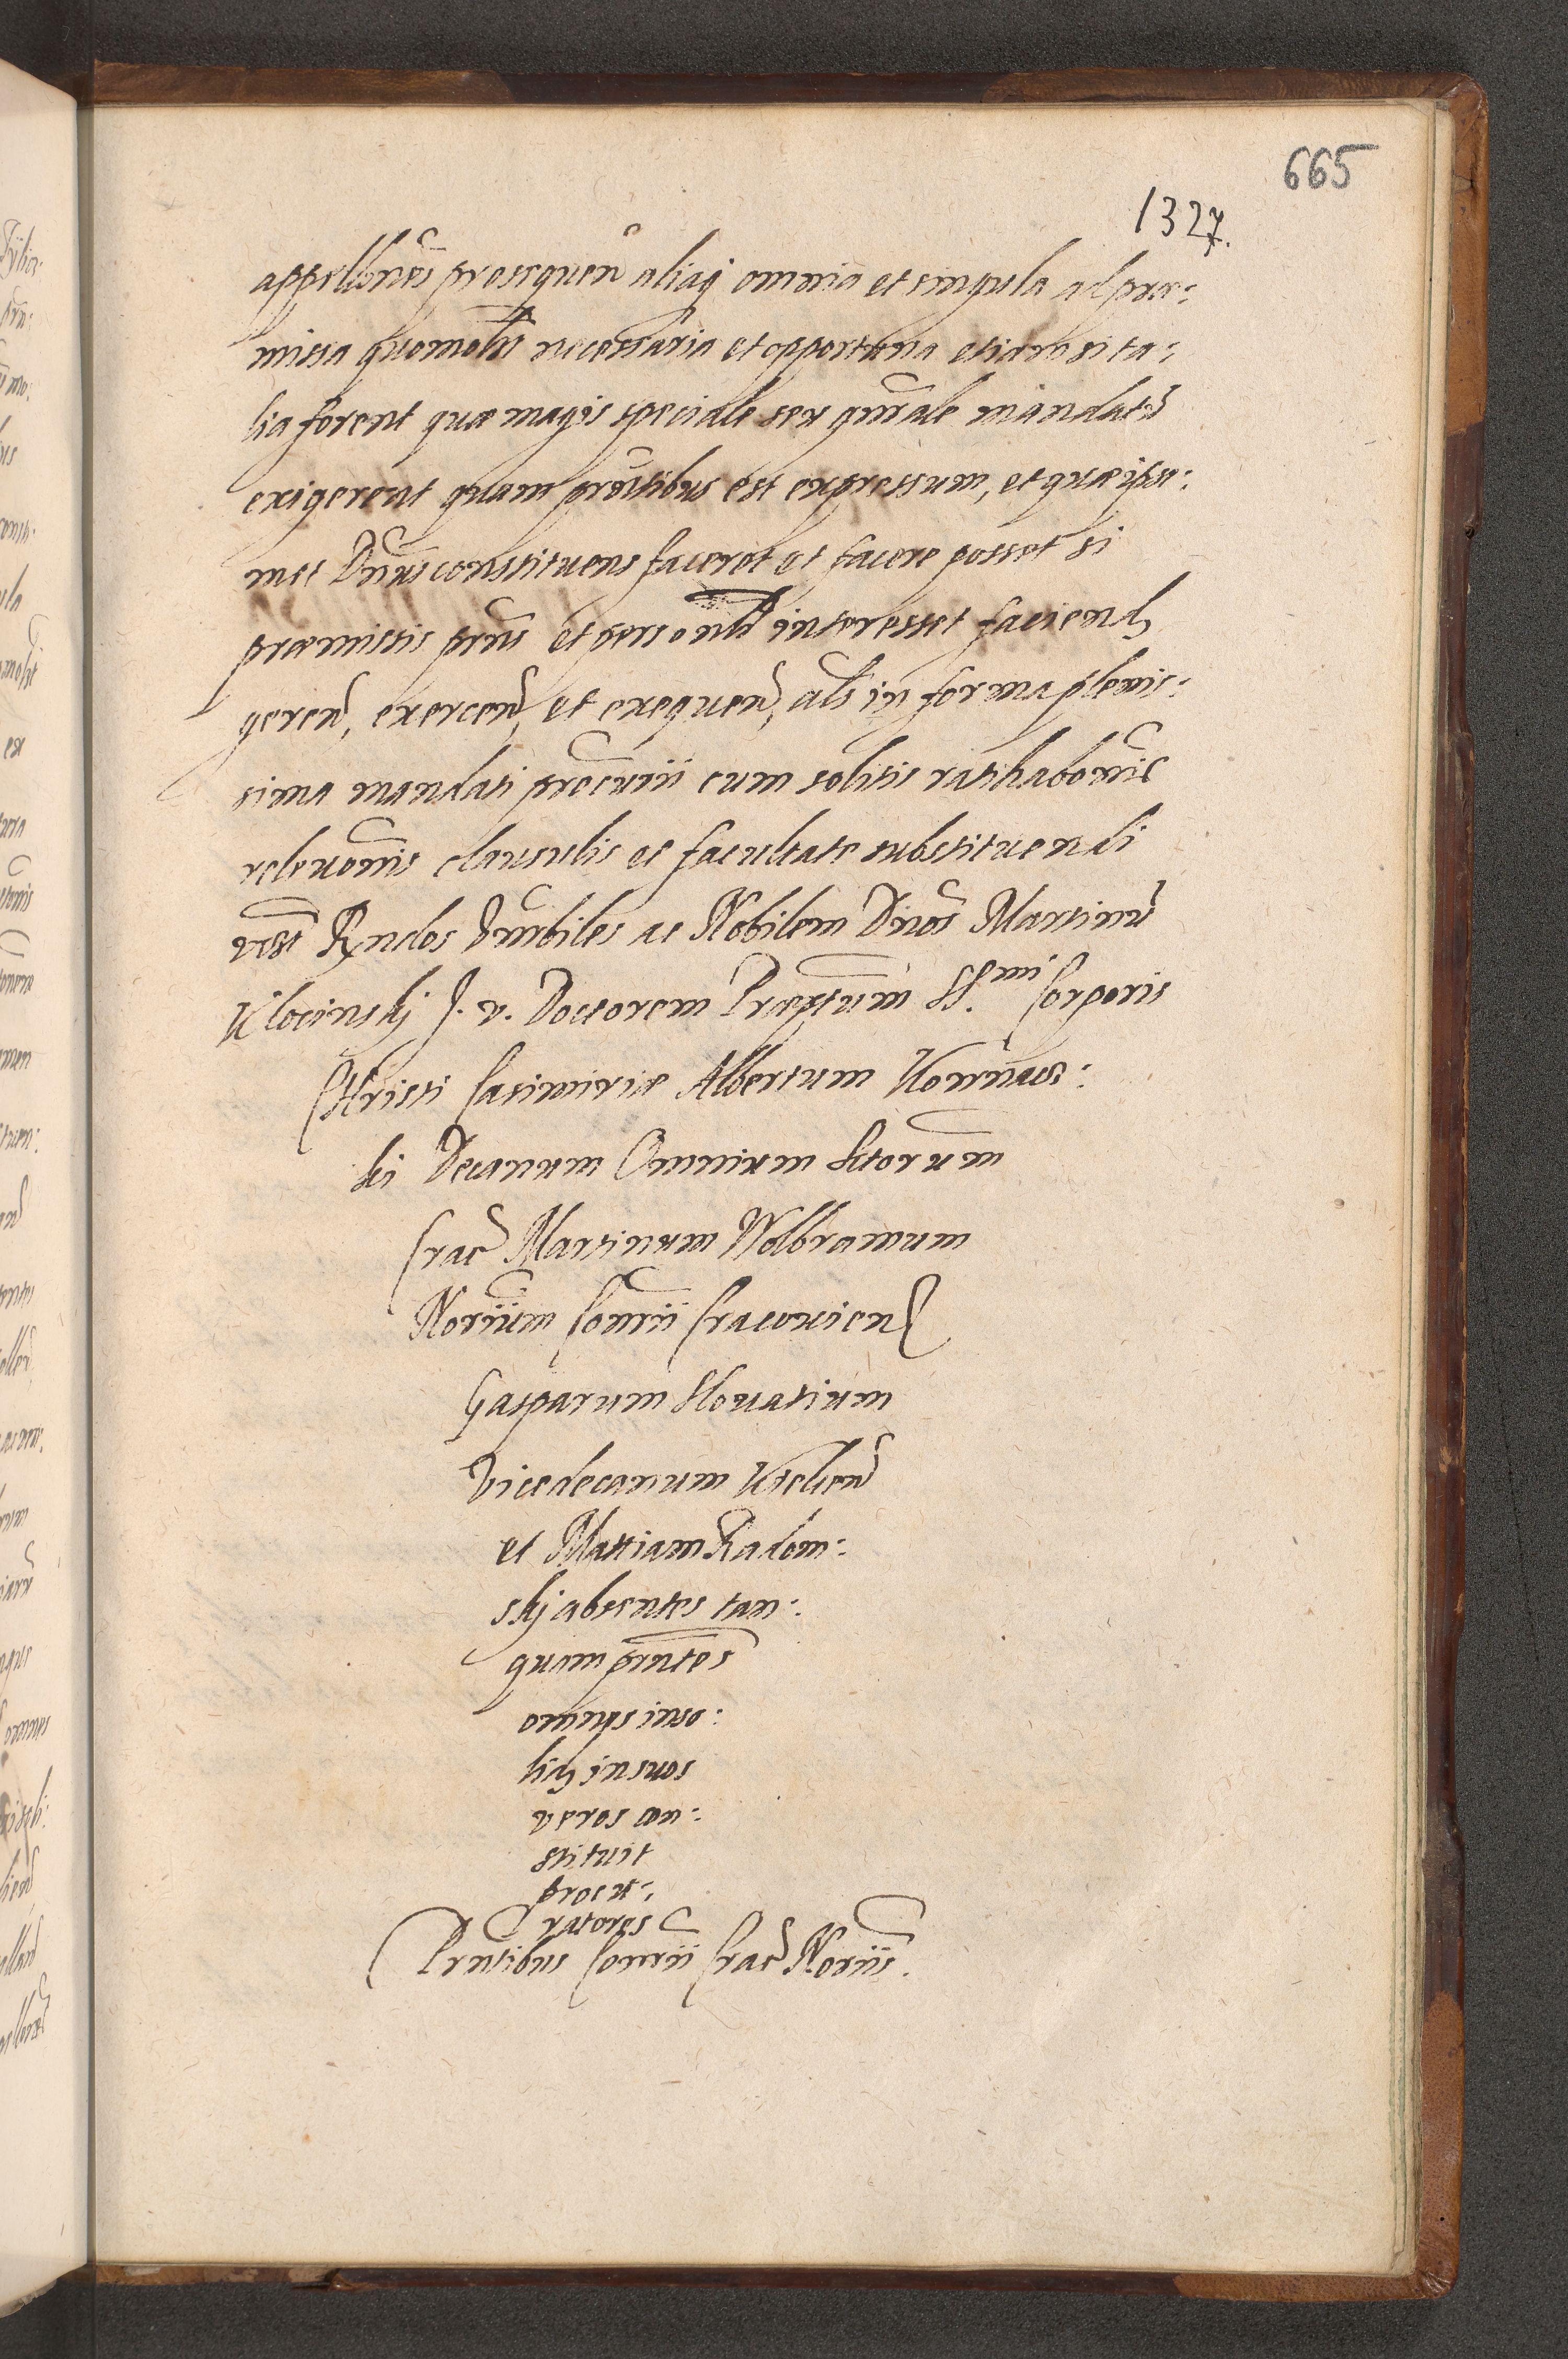 665
1327.
appellônes prosequeñ aliaq omnia et singula ad præ:
missa quomolt necessaria et opportuna etiam si ta:
lia forent quæ magis speciale seu gnrale mandatũ
exigerent quam prñtibus est expressum, et quæ ipse:
met Dnus constituens faceret et facere posset si
præmissis prns et personlr interesset faciend,
gereñ, exerceñ, et exequeñ, als in forma plenis:
sima mandati procurii cum solitis ratihabonis
releuonis clausulis ac facultate substituendi
vest Rndos Honorbiles ac Nobilem Dnos Martinũ
Klocinskj J. v. Doctorem Præptum SS.mi Corporis
Christi Casimiriæ Albertum Kornaws:
ki Decanum Omnium Sctorum
Crac Martinum Wolbramum
Noriium Comrii Cracouien
Gasparum Slouatium
Vicedecanum Kielceñ
et Mattiam Radom:
skj absentes tan:
quam pñtes
omnes in so:
lid in suos
veros con:
stituit
procu:
ratores
Prntibus Comrii Crac Noriis.